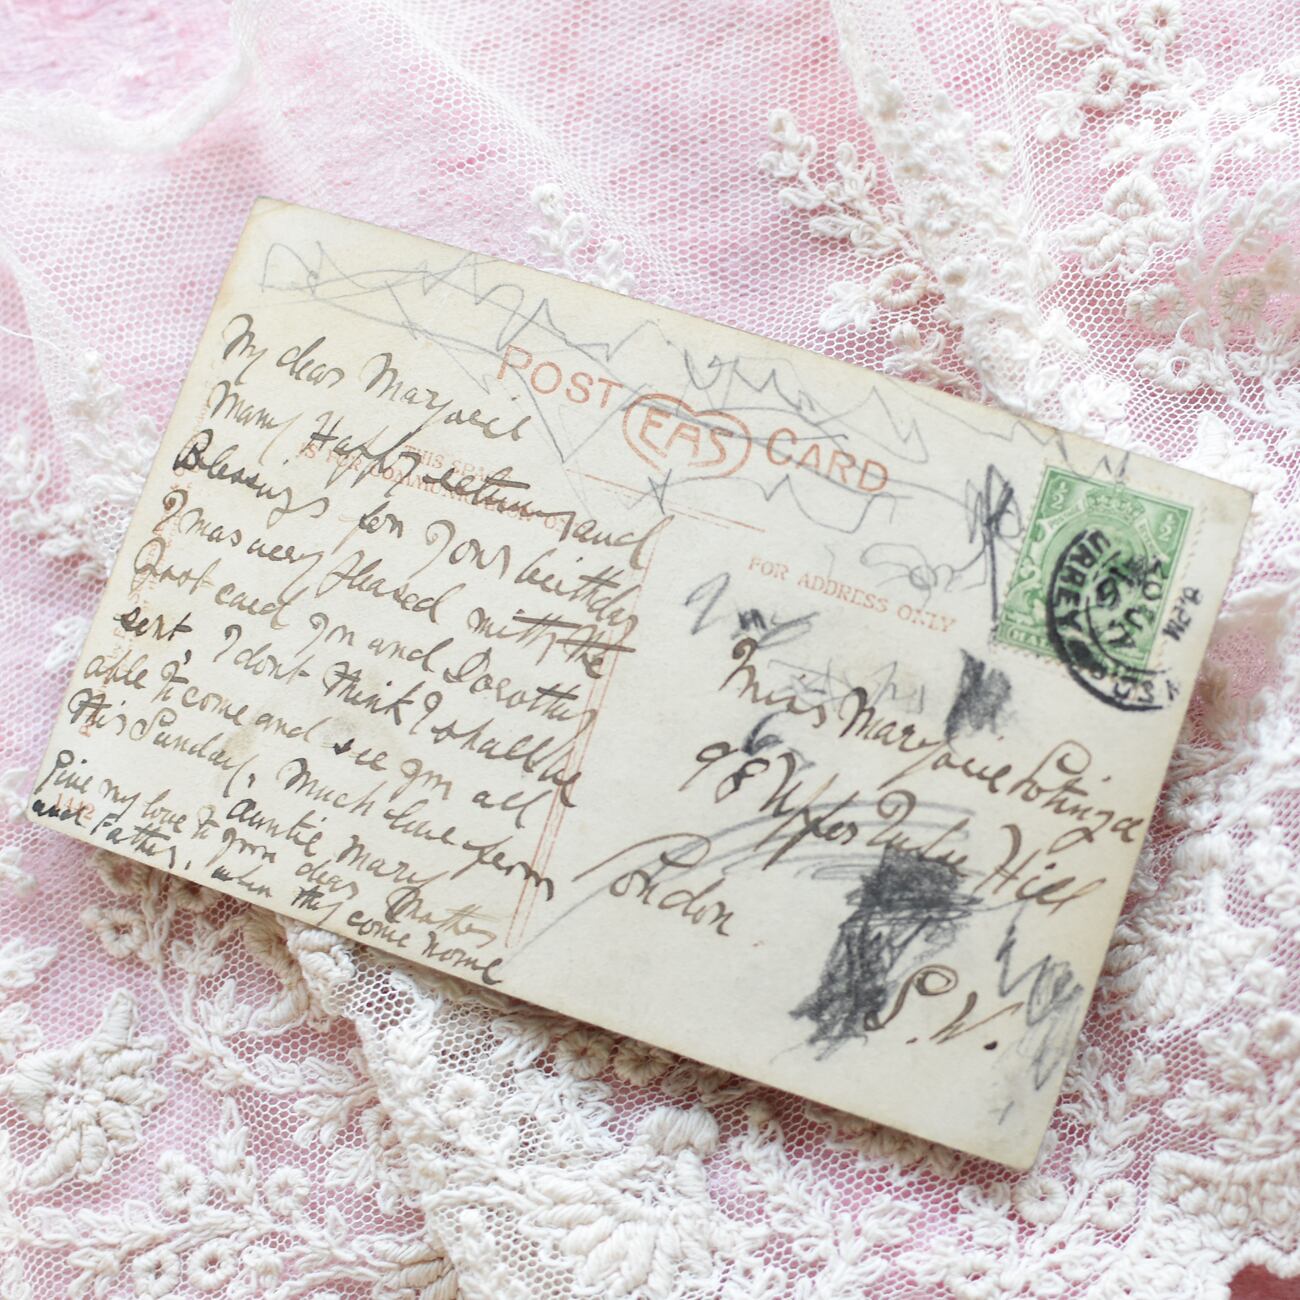 POST EAS CARD
THIS SPACE
IS FOR COMMUNICATION ONLY
FOR ADDRESS ONLY
My dear Marjorie
Many Happy returns and
Blessings for your birthday
I was very pleased with the
Post card you and Dorothy
sent, I dont think I shall be
able to come and see you all
this Sunday, Much love from
Auntie Mary
Give my love to your dear Mother
and Father, when they come home
Miss Marjorie
98 Upper Tulse Hill
London
S.W.
SURREY
16
JU